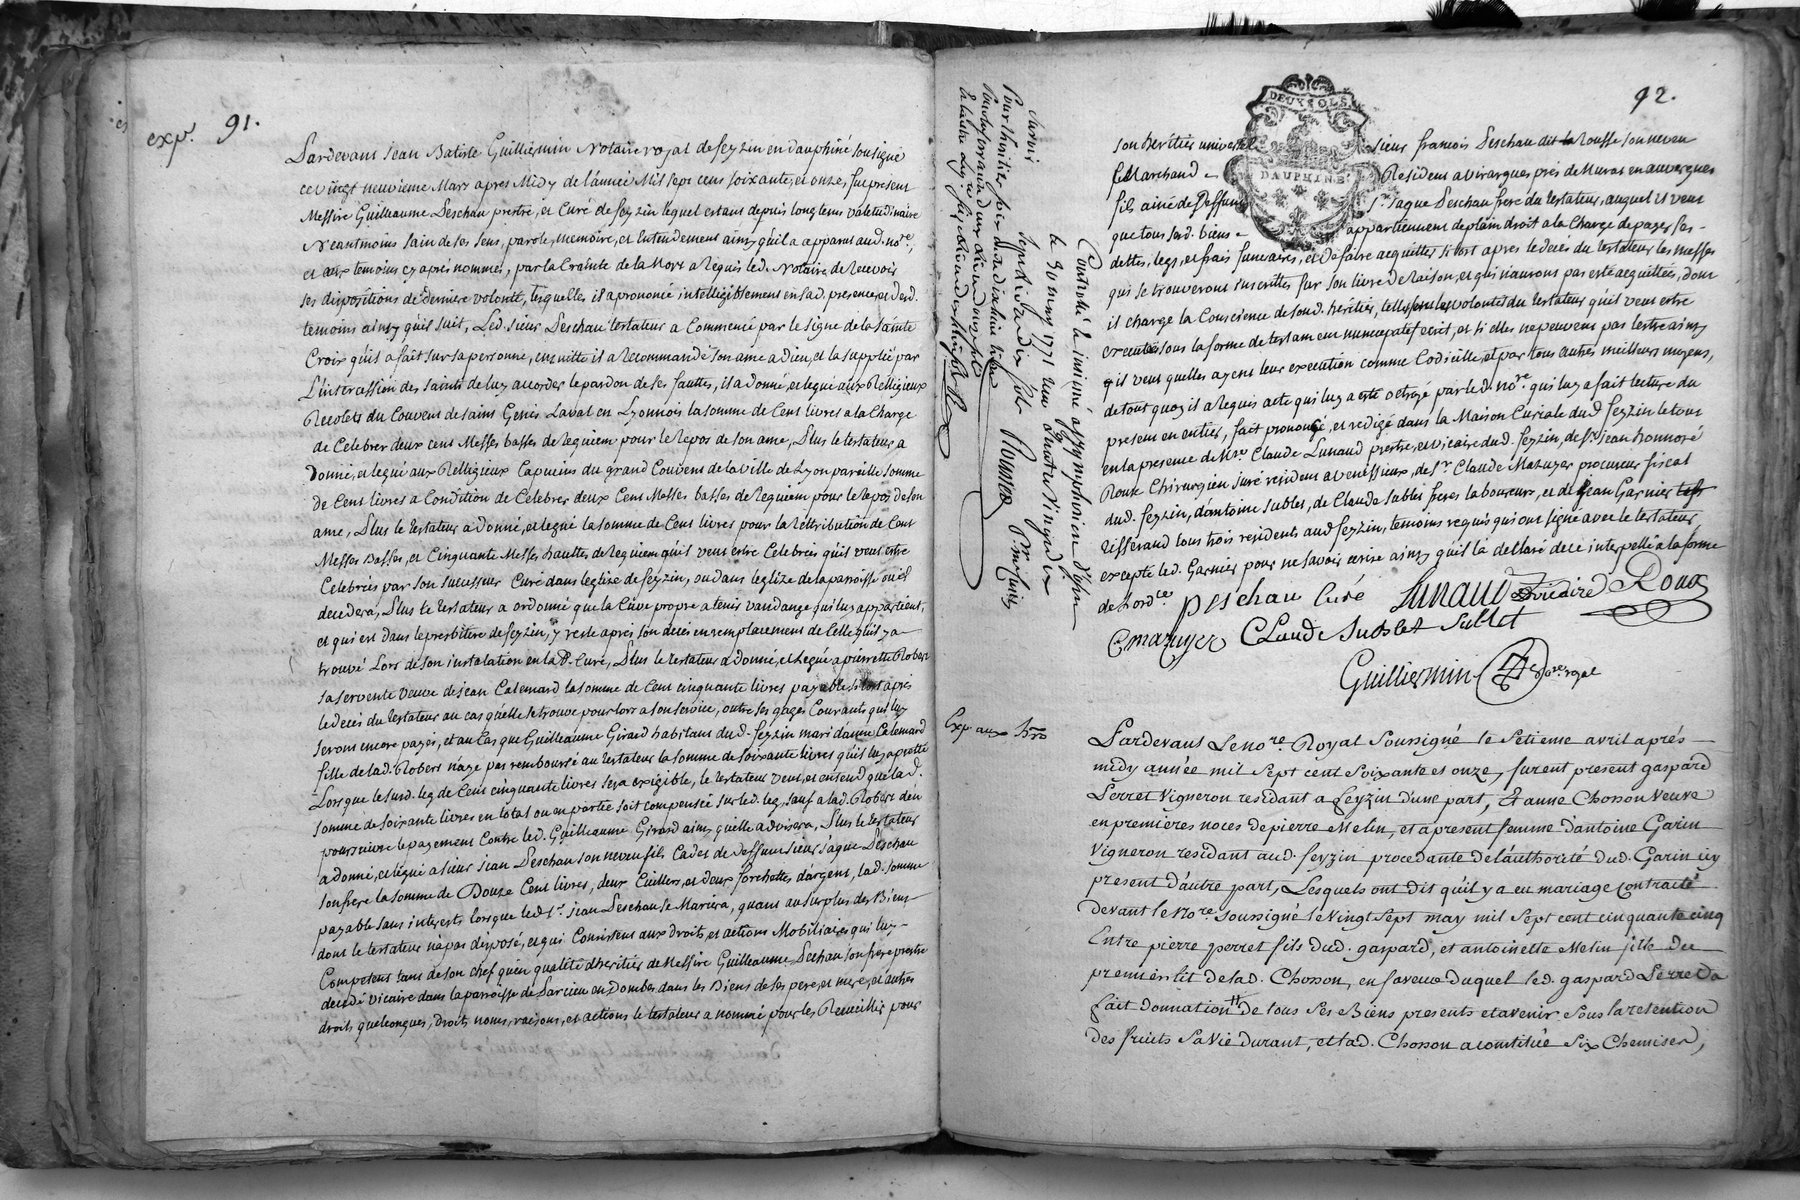 exp.r 91.
Pardevant Jean Batiste Guilliermin Notaire royal de feyzin en dauphiné soussigné
ce vingt neuvieme Mars apres Midy de l'année Mil sept cens soixante, et onze, fut present
Messire Guilleaume Peschau prestre, et Curé de feyzin lequel estant depuis long tems valetudinaire
Neantmoins sain de ses sens, parole, memoire, et Entendement ainsy qu'il a apparus aud. no.re,
et aux temoins cy aprés nommés, par la Crainte de la Mort a requis led. Notaire de Recevoir
ses dispositions de derniere volonté, lesquelles il a prononcé intelligiblement en sad. presence, et desd.
temoins ainsy qu'il suit, Led. sieur Peschau testateur a Commencé par le signe de la sainte
Croix qu'il a fait sur sa personne, ensuitte il a recommandé son ame a dieu, et la supplié par
L'intercession des saints de luy accorder le pardon de ses fauttes, il a donné, et legué aux Relligieux
Recolets du Couvent de saint Genis Laval en Lyonnois la somme de Cent livres a la Charge
de Celebrer deux cent Messes basses de requiem pour le repos de son ame, Plus le testateur a
donné, et legué aux Relligieux Capucins du grand Couvent de la ville de Lyon pareille somme
de Cent livres a Condition de Celebrer deux Cent Messes basses de requiem pour le repos de son
ame, Plus le testateur a donné, et legué la somme de Cent livres pour la rettribution de Cent
Messes Basses, et Cinquante Messes hauttes de requiem qu'il veut estre Celebrées qu'il veut estre
Celebrées par son successeur Curé dans leglize de feyzin, ou dans leglize de la parroisse ou il
decedera, Plus le testateur a ordonné que la Cuve propre a tenir vandange qui luy appartient,
et qui est dans le presbitere de feyzin, y reste aprés son decés en remplacement de Celle qu'il y a
trouvé Lors de son instalation en lad. Cure, Plus le testateur a donné, et legué a pierrette Robert
sa servente veuve de jean Calemard la somme de Cent cinquante livres payable si tost aprés
le deces du testateur au cas qu'elle se trouve pour lors a son service, outre ses gages Courants qui luy
seront encore payés, et au Cas que Guilleaume Girard habitant dud. feyzin mari d'anne Calemard
fille de lad. Robert n'aye pas remboursé au testateur la somme de soixante livres qu'il luy a pretté
Lorsque le susd. leg de Cent cinquante livres sera exigible, le testateur veut, et entend que lad.
somme de soixante livres en total ou en partie soit compensée sur led. leg, sauf a lad. Robert d'en
poursuivre le payement Contre led. Guilleaume Girard ainsy qu'elle advisera, Plus le testateur
a donné, et legué a sieur jean Peschau son neveu fils Cadet de deffunt sieur jaque Peschau
son frere la somme de Douze Cent livres, deux Cuilliers, et deux forchettes d'argent, lad. somme
payable sans interests lorsque led. s.r jean Peschau se Mariera, quant au surplus des Biens
dont le testateur n'a pas disposé, et qui Consistent aux droits, et actions Mobiliaires qui luy
Competent tant de son chef qu'en qualité d'heritier de Messire Guilleaume Peschau son frere prestre
decedé vicaire dans la parroisse de Parcieu en Dombes, dans les Biens de ses pere, et mere, et autres
droits quelconques, droits, noms, raisons, et actions le testateur a nommé pour les Recueillir pour
92.
DEUX SOLS
DAUPHINE
son heritier universel sieur francois Peschau dit la Rousse son neveu
Marchand Resident a virargues prés de Murat en auvergnes
fils ainé de deffunt s.r jaque Peschau frere du testateur, auquel il veut
que tous sesd. biens appartiennent de plain droit a la Charge de payer ses
dettes, legs, et frais funeraires, et de faire acquitter si tost apres le deces du testateur les messes
qui se trouveront inscrittes sur son livre de raison, et qui n'auront pas esté acquittées, dont
il charge la Conscience de sond. heritier, telles sont les volontés du testateur qu'il veut estre
executées sous la forme de testament nuncupatif ecrit, et si elles ne peuvent pas l'estre ainsy
il veut quelles ayent leur execution comme Codicille, et par tous autres meilleurs moyens,
de tout quoy il a requis acte qui luy a esté octroyé par led. no.re qui luy a fait lecture du
present en entier, fait prononcé, et redigé dans la Maison Curiale dud. feyzin le tout
en la presence de M.re Claude Lunaud prestre, et vicaire dud. feyzin, de s.r jean honnoré
Roux Chirurgien juré resident a venissieux, de s.r Claude Mazuyer procureur fiscal
dud. feyzin, d'antoine sublet, de Claude sublet freres laboureurs, et de jean Garnier
tisserand tous trois residents aud. feyzin, temoins requis qui ont signé avec le testateur
excepté led. Garnier pour ne savoir ecrire ainsy qu'il la declaré de ce interpellé a la forme
de l'ord.ce peschau Curé Lunaud vicaire Roux
Cmazuyer CLaude Sublet Sublet
Guilliermin no.re royal
Controlé le
le 30 mars 1771
Exp. aux
Pardevant Le no.re Royal Soussigné le Setieme avril aprés
midy année mil Sept cent Soixante et onze, furent present gaspard
Perret Vigneron residant a feyzin d'une part, Et anne Chosson Veuve
en premieres noces de pierre Melin, et apresent femme d'antoine Garin
Vigneron residant aud. feyzin procedante de l'authorité dud. Garin icy
present d'autre part, Lesquels ont dit qu'il y a eu mariage Contracté
devant le No.re Soussigné le Vingt Sept may mil Sept cent cinquante cinq
Entre pierre perret fils dud. gaspard, et antoinette Melin fille du
premier lit de lad. Chosson, en faveur duquel led. gaspard Perret a
fait donnation de tous Ses Biens presents et avenir Sous la retention
des fruits Sa Vie durant, et lad. Chosson a constitué Six Chemises,